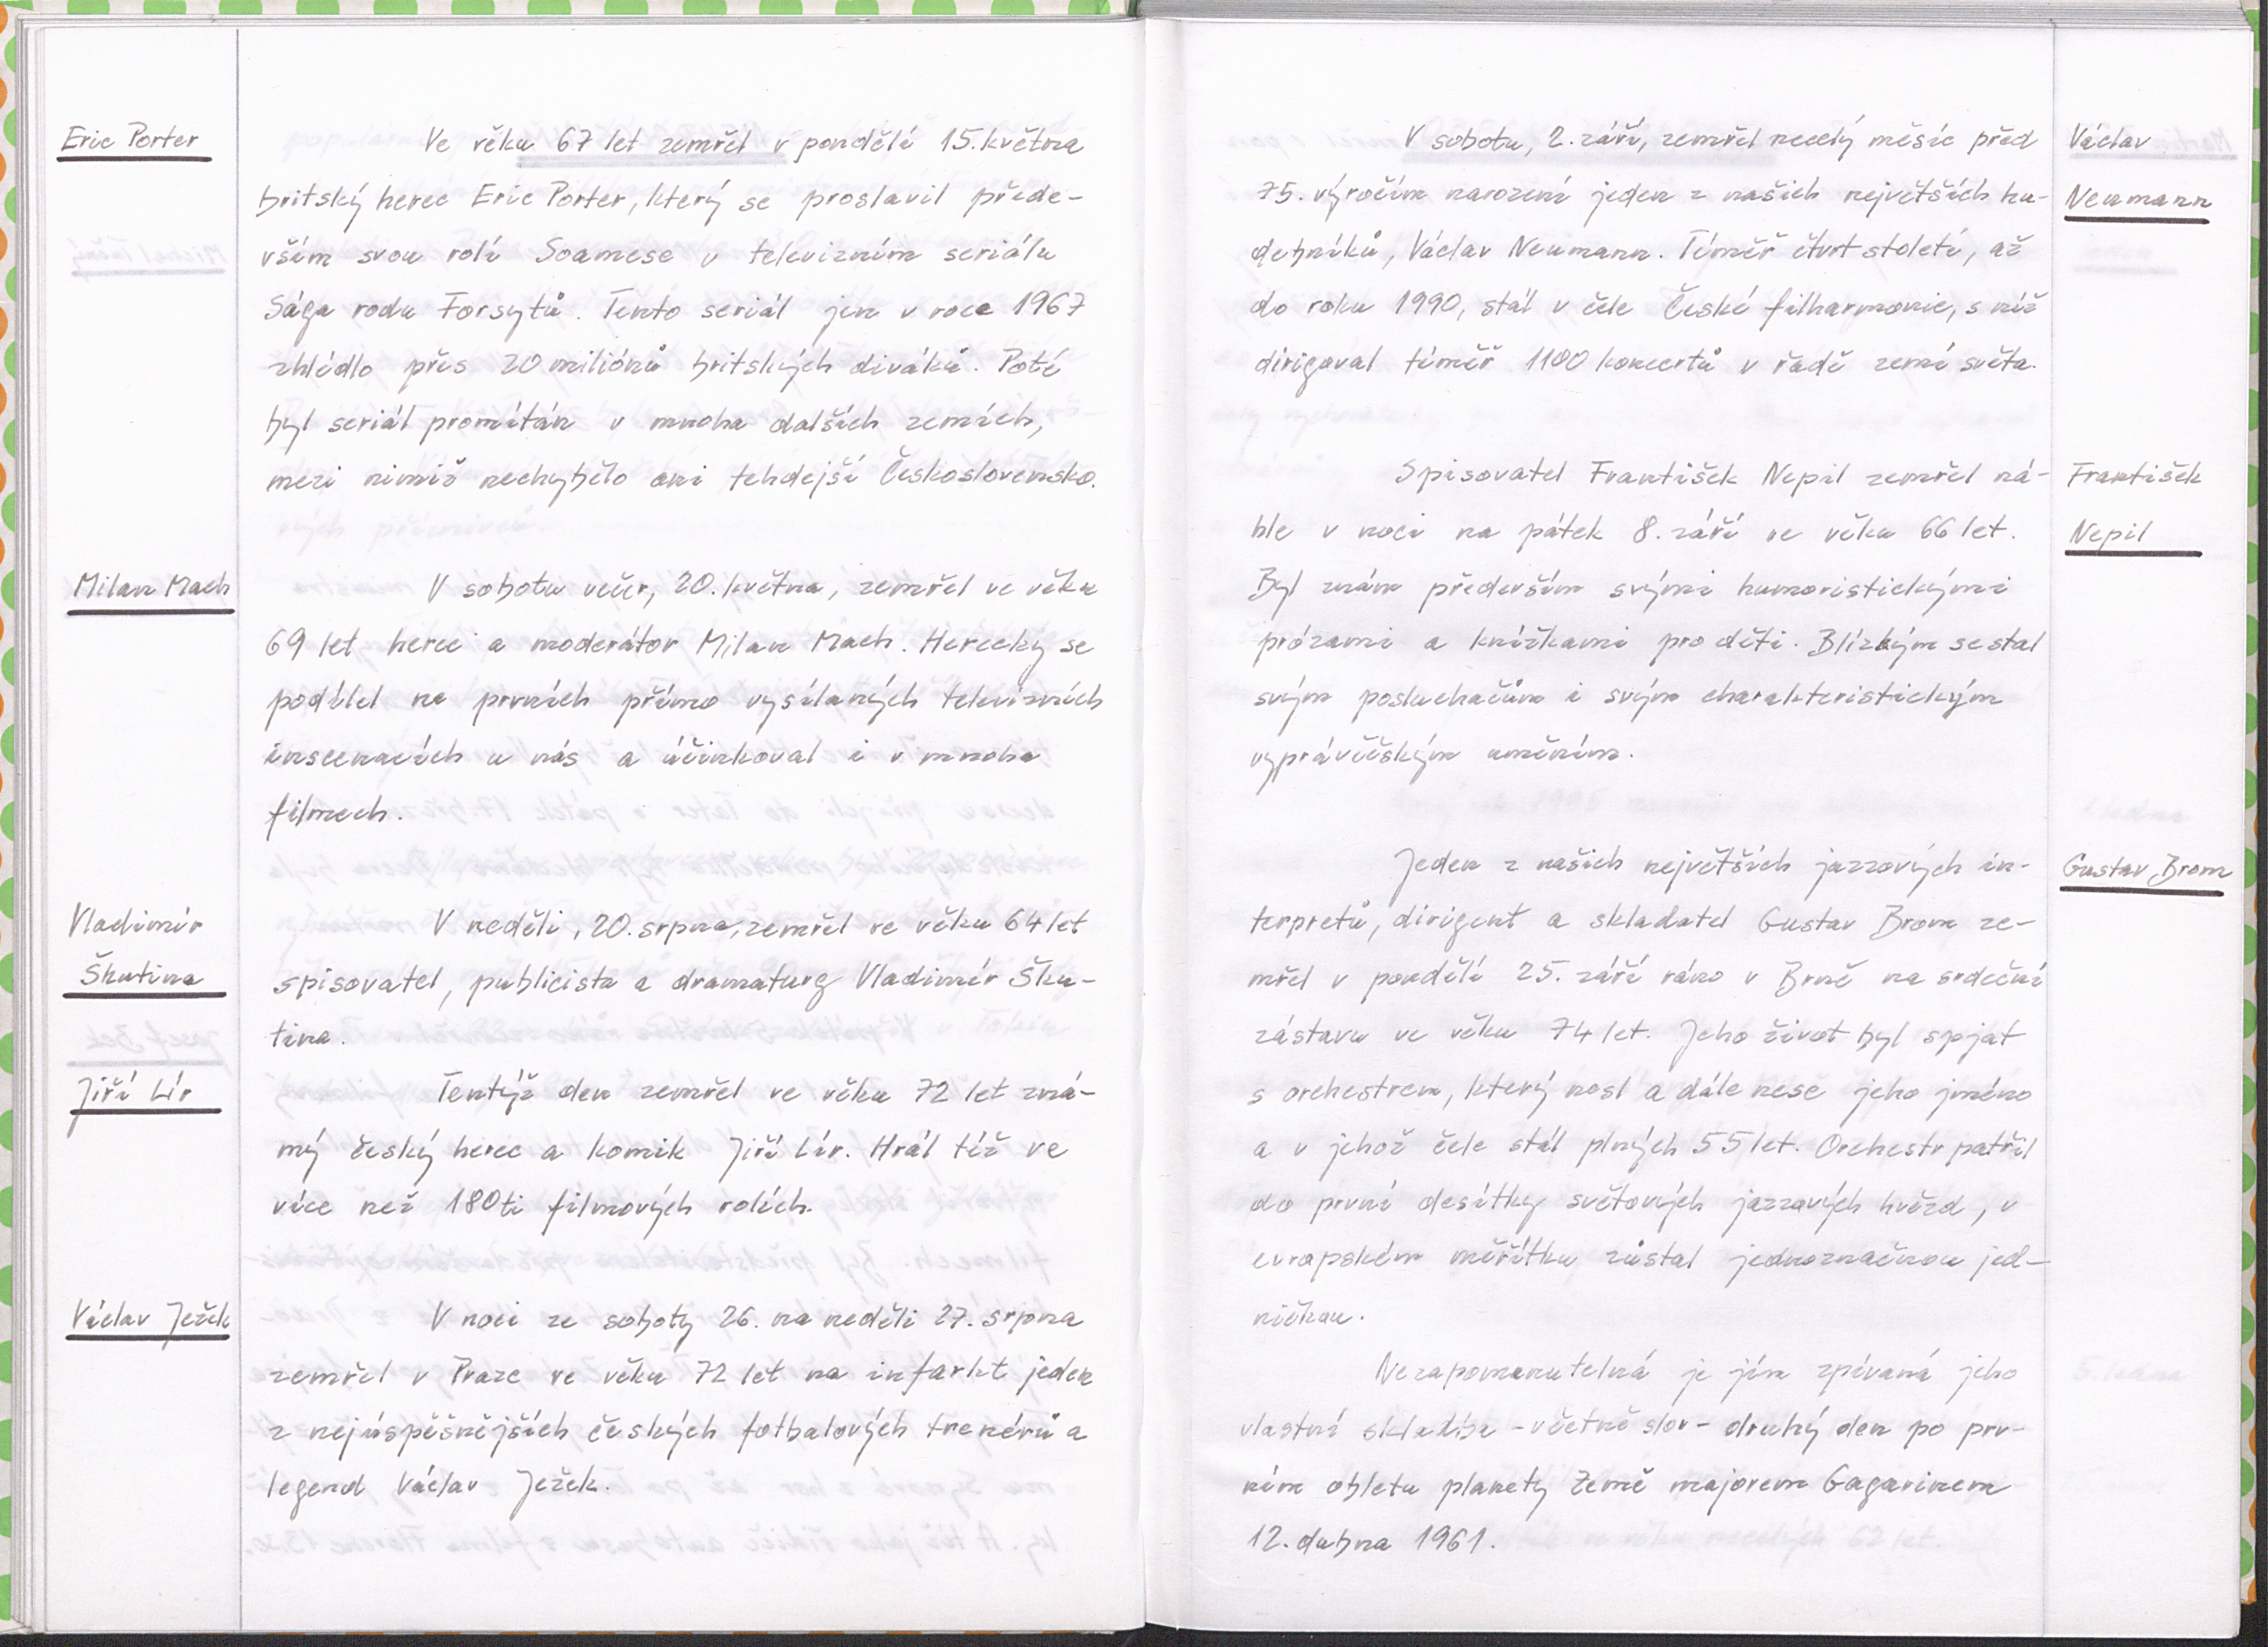 Eric Porter
Ve věku 67 let zemřel v pondělí 15. května
britský herec Eric Porter, který se proslavil přede-
vším svou rolí Soamese v televizním seriálu
Sága rodu Forsytů. Tento seriál jen v roce 1967
zhlédlo přes 20 miliónů britských diváků. Poté
byl seriál promítán v mnoha dalších zemích,
mezi nimiž nechybělo ani tehdejší Československo.
Milan Mach
V sobotu večer, 20. května, zemřel ve věku
69 let herec a moderátor Milan Mach. Herecky se
podílel na prvních přímo vysílaných televizních
inscenacích u nás a účinkoval i v mnoha
filmech.
Vladimír
Škutina
V neděli, 20. srpna, zemřel ve věku 64 let
spisovatel, publicista a dramaturg Vladimír Šku-
tina.
Jiří Lír
Tentýž den zemřel ve věku 72 let zná-
mý český herec a komik Jiří Lír. Hrál též ve
více než 180ti filmových rolích.
Václav Ježek
V noci ze soboty 26. na neděli 27. srpna
zemřel v Praze ve věku 72 let na infarkt jeden
z nejúspěšnějších českých fotbalových trenérů a
legend Václav Ježek.
V sobotu, 2. září, zemřel necelý měsíc před
75. výročím narození jeden z našich největších hu-
debníků, Václav Neumann. Téměř čtvrt století, až
do roku 1990, stál v čele České filharmonie, s níž
dirigoval téměř 1100 koncertů v řadě zemí světa.
Václav
Neumann
Spisovatel František Nepil zemřel ná-
hle v noci na pátek 8. září ve věku 66 let.
Byl znám především svými humoristickými
prózami a knížkami pro děti. Blízkým se stal
svým posluchačům i svým charakteristickým
vypravěčským uměním.
František
Nepil
Jeden z našich největších jazzových in-
terpretů, dirigent a skladatel Gustav Brom ze-
mřel v pondělí 25. září ráno v Brně na srdeční
zástavu ve věku 74 let. Jeho život byl spjat
s orchestrem, který nesl a dále nese jeho jméno
a v jehož čele stál plných 55 let. Orchestr patřil
do první desítky světových jazzových hvězd, v
evropském měřítku zůstal jednoznačnou jed-
ničkou.
Nezapomenutelná je jím zpívaná jeho
vlastní skladba - včetně slov - druhý den po prv-
ním obletu planety Země majorem Gagarinem
12. dubna 1961.
Gustav Brom